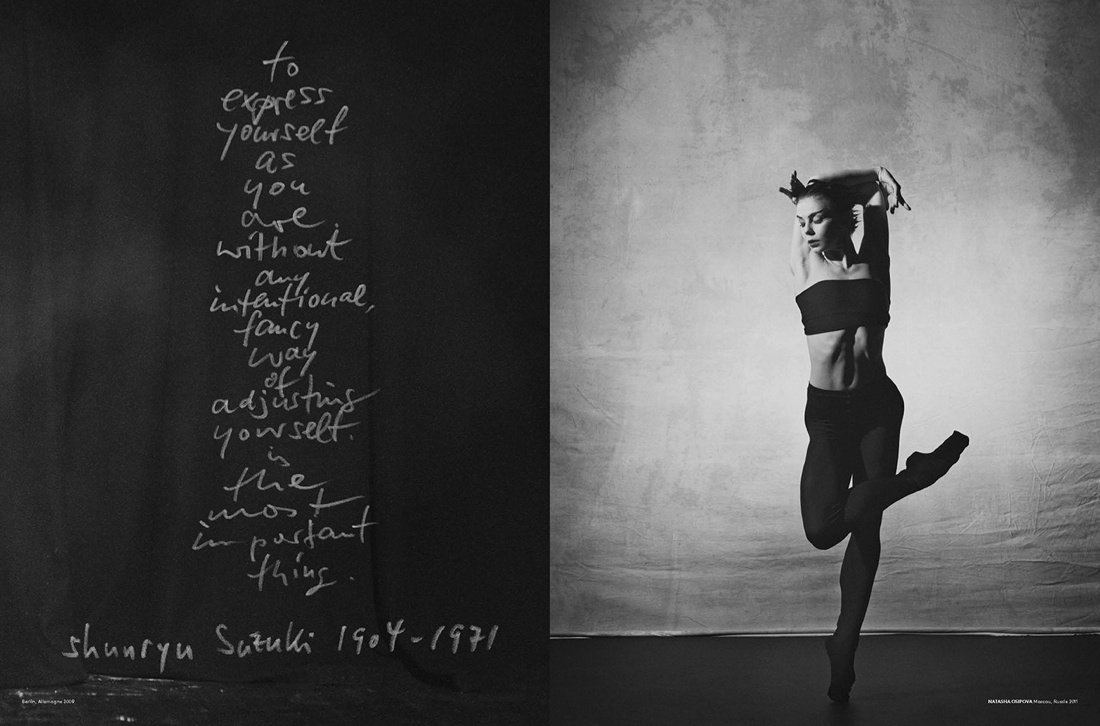 to
express
yourself
as
you
are.
without
any
intentional,
fancy
way
of
adjusting
yourself.
is
the
most
important
thing.
shunryu Suzuki 1904-1971
Berlin, Allemagne 2009
NATASHA OSIPOVA Moscou, Russie 2011